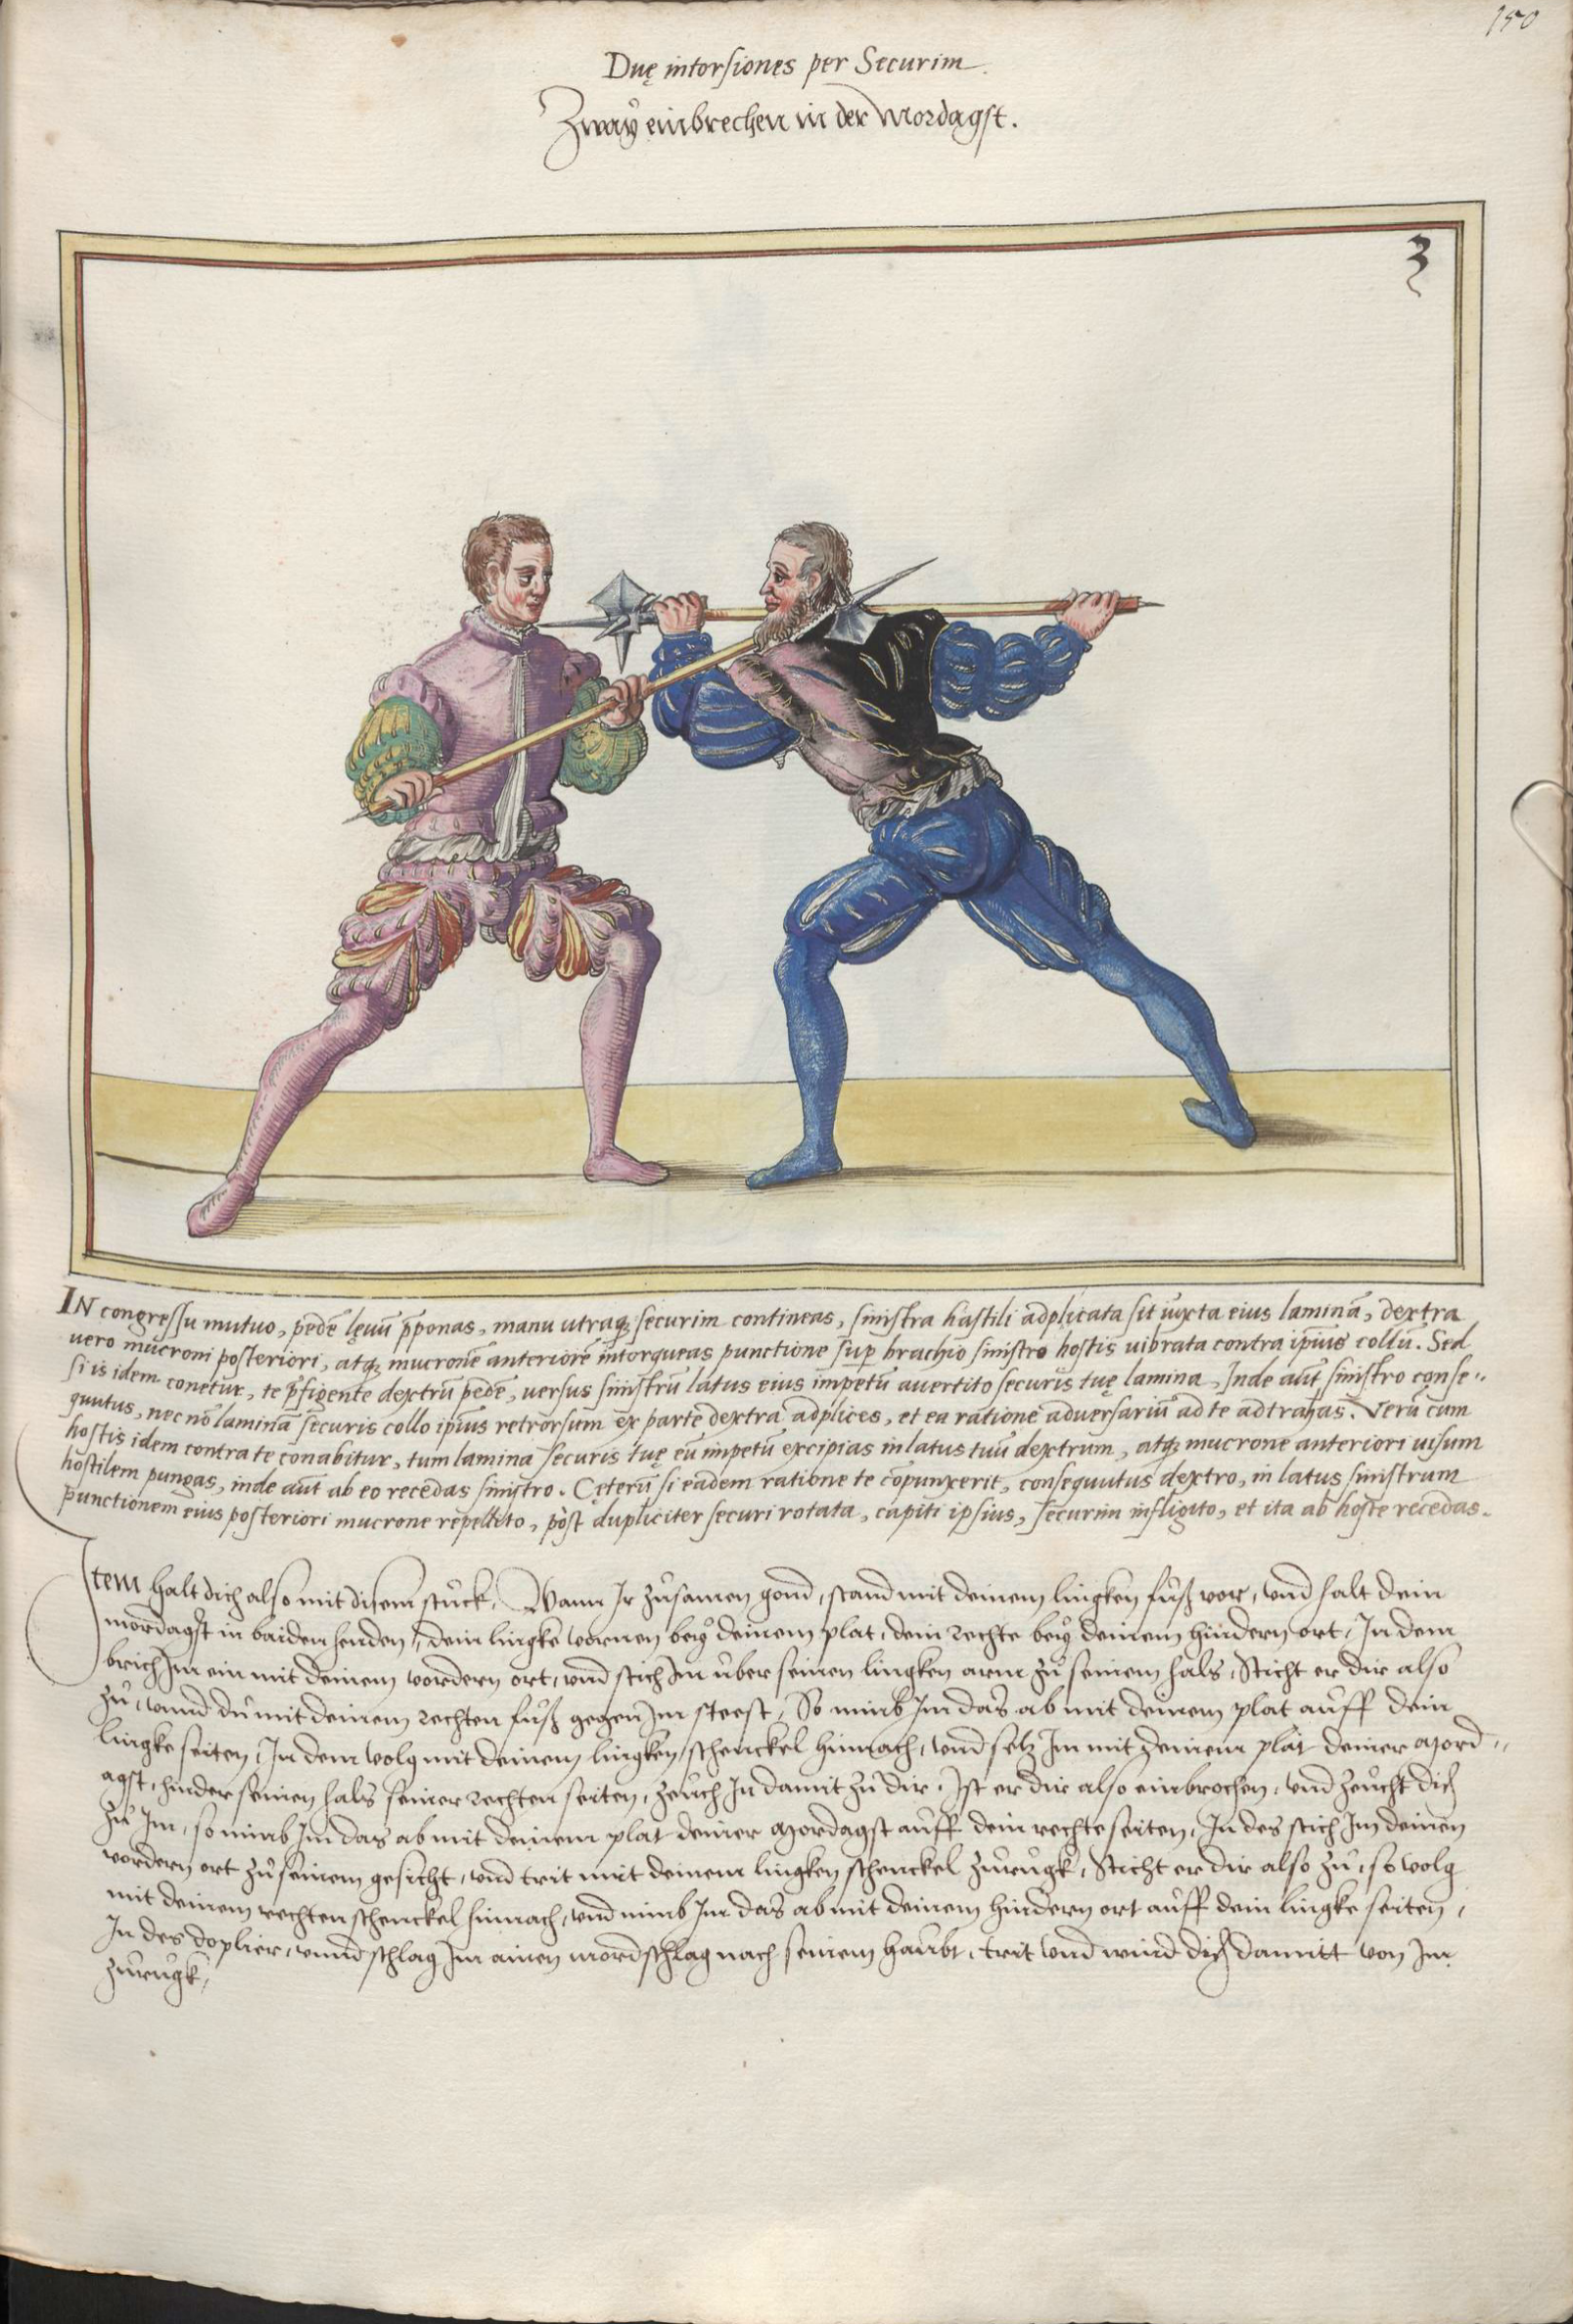 150
Duę intorsiones per Securim.
Zwaÿ einbrechen in der Mordagst.
3
IN congressu mutuo, pedē lęuū p̄ponas, manu utraq; securim contineas, sinistra hastili adplicata sit iuxta eius laminā, dextra
uero mucroni posteriori, atq; mucronē anteriorē intorqueas punctione sup brachio sinistro hostis uibrata contra ipius collū. Sed
si is idem conetur, te p̄figente dextrū pedē, uersus sinistrū latus eius impetū auertito securis tuę lamina, Inde aūt sinistro conse-
quutus, nec nō laminā securis collo ipius retrorsum ex parte dextra adplices, et ea ratione aduersariū ad te adtrahas. Verū cum
hostis idem contra te conabitur, tum lamina securis tuę eū impetū excipias in latus tuū dextrum, atq; mucrone anteriori uisum
hostilem pungas, inde aūt ab eo recedas sinistro. Cęterū si eadem ratione te cōpunxerit, consequutus dextro, in latus sinistrum
punctionem eius posteriori mucrone repellito, pòst dupliciter securi rotata, capiti ipsius, securim infligito, et ita ab hoste recedas.
Item halt dich also mit disem stuck, Wann Ir zůsamen gond, stand mit deinem lingken fůß vor, vnd halt dein
mordagst in baiden henden, dein lingke vornen beÿ deinem plat, dein rechte beÿ deinem hindern ort, In dem
brich Im ein mit deinem vordern ort, vnd stich Im über seinen lingken arm zů seinem hals, Sticht er dir also
zů, vnnd dů mit deinem rechten fůß gegen Im steest, So nimb Im das ab mit deinem plat auff dein
lingke seiten, In dem volg mit deinem lingken schenckel hinnach, vnd setz Im mit deinem plat deiner Mord-
agst, hinder seinen hals seiner rechten seiten, zeuch In damit zů dir, Ist er dir also einbrochen, vnd zeucht dich
zů Im, so nimb Im das ab mit deinem plat deiner Mordagst auff dein rechte seiten, In des stich Im deinen
vordern ort zů seinem gesicht, vnd trit mit deinem lingken schenckel zurugk, Sticht er dir also zů, so volg
mit deinem rechten schenckel hinnach, vnd nimb Im das ab mit deinem hindern ort auff dein lingke seiten,
In des doplier, vnnd schlag Im ainen mordschlag nach seinem haubt, trit vnd wind dich damitt von Im
zurugk,